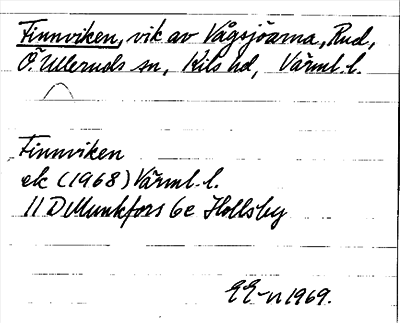 Finnviken, vik av Vågsjöarna, Rud,
Ö. Ulleruds sn, Kils hd, Värml. l.
Finnviken
ek (1968) Värml. l.
11 D Munkfors 6e Hollsby
EE-n 1969.